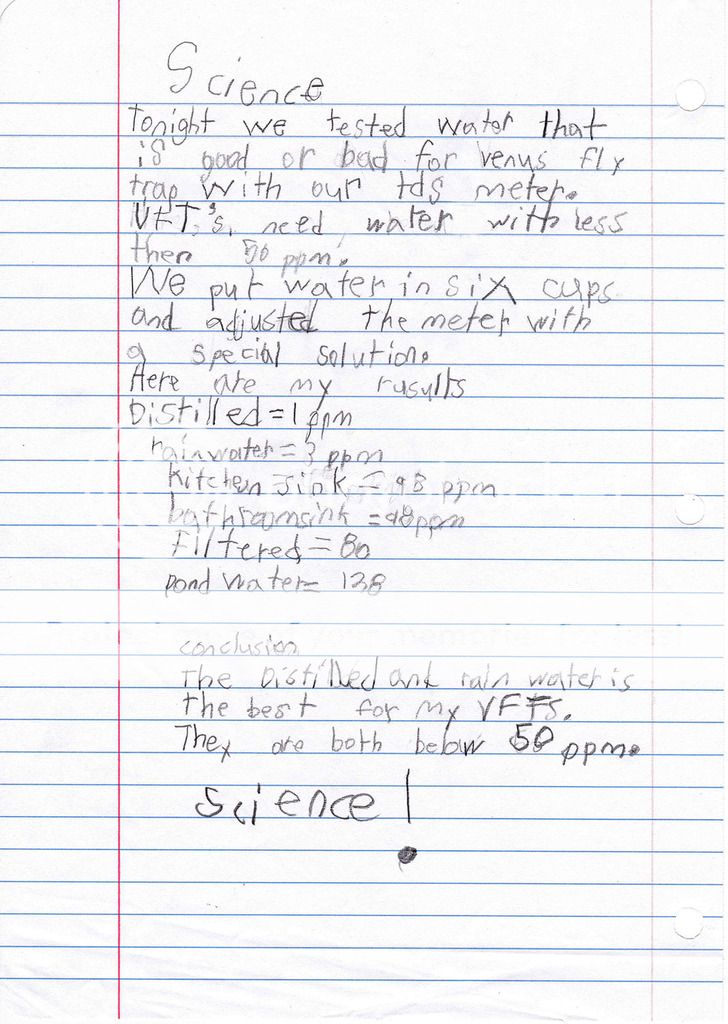 Science
Tonight we tested water that
is good or bad for venus fly
trap with our tds meter.
VFT's. need water with less
then 50 ppm.
We put water in six cups
and adjusted the meter with
a special solution.
Here are my rusults
Distilled = 1 ppm
rainwater = 3 ppm
Kitchen sink = 98 ppm
bathroomsink = 98 ppm
Filtered = 80
pond water = 138
conclusion
The Distilled and rain water is
the best for my VFTS.
They are both below 50 ppm.
science!